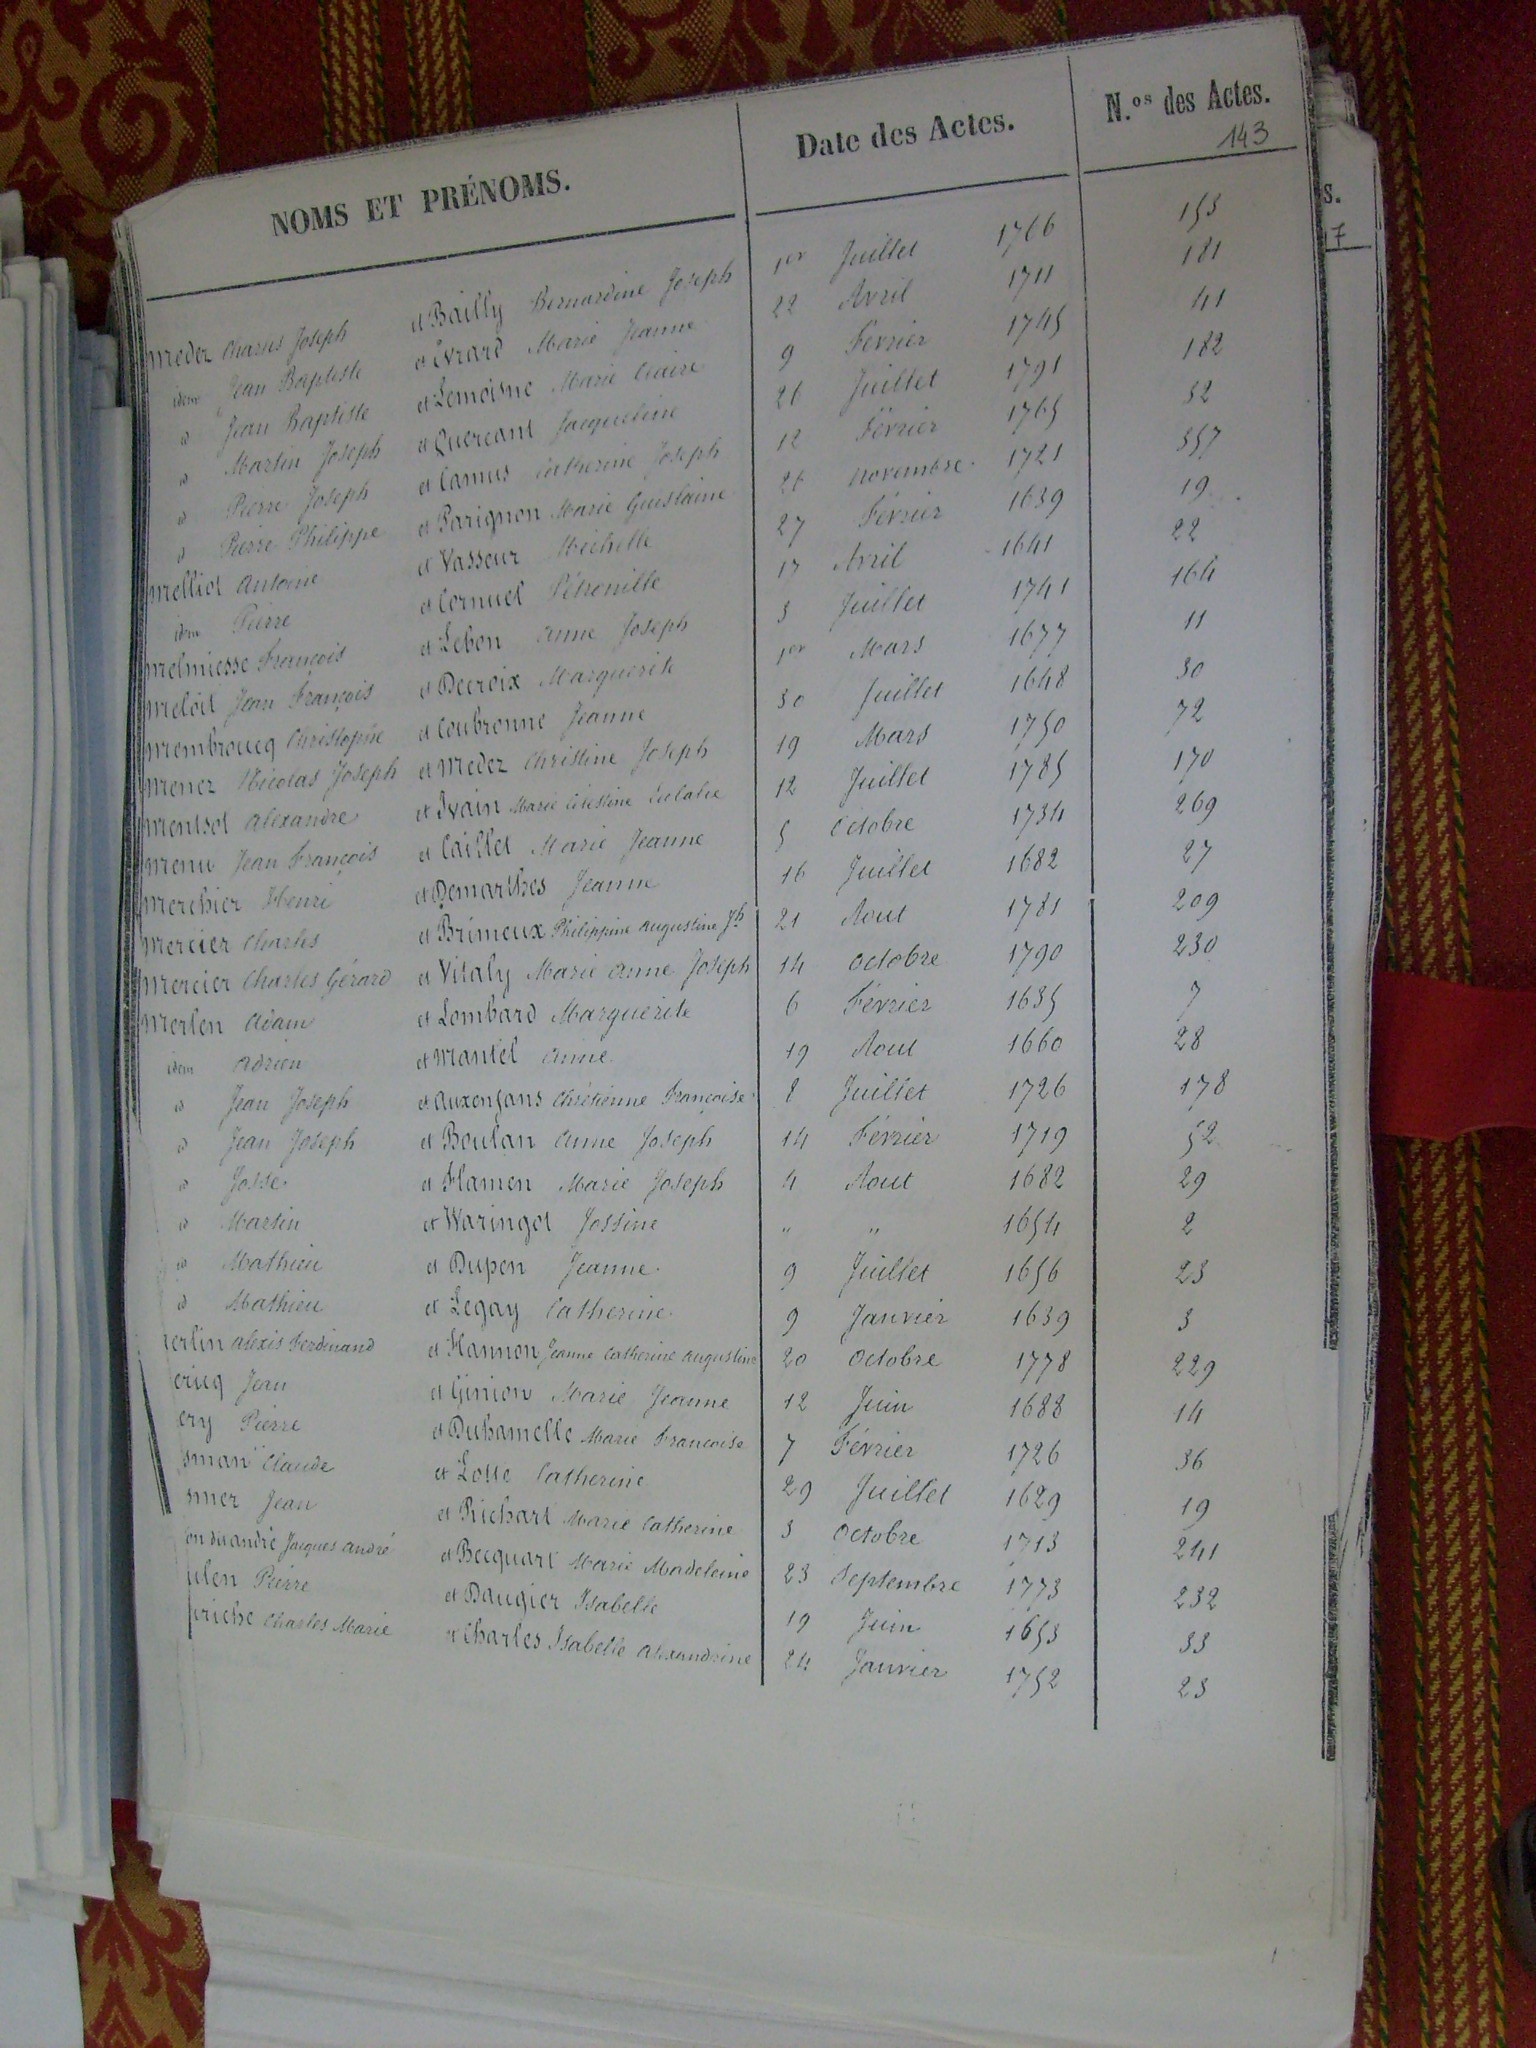 NOMS ET PRÉNOMS. Date des Actes. N.os des Actes.
143
Medez Charles Joseph et Bailly Bernardine Joseph 1er Juillet 1766 153
idem Jean Baptiste et Evrard Marie Jeanne 22 Avril 1711 181
id Jean Baptiste et Lemoisne Marie Claire 9 Février 1745 41
id Martin Joseph et Quercant Jacqueline 26 Juillet 1791 182
id Pierre Joseph et Camus Catherine Joseph 12 Février 1765 32
id Pierre Philippe et Parignon Marie Guislaine 26 novembre 1721 357
Melliot Antoine et Vasseur Michelle 27 Février 1639 19
idem Pierre et Cornuel Pétronille 17 Avril 1641 22
Melmiesse François et Lebon Anne Joseph 3 Juillet 1741 164
Meloit Jean François et Decroix Marguerite 1er Mars 1677 11
Membroucq Christophe et Coubronne Jeanne 30 Juillet 1648 30
Menez Nicolas Joseph et Medez Christine Joseph 19 Mars 1750 72
Mentsot Alexandre et Ivain Marie Célestine Eulalie 12 Juillet 1785 170
Menu Jean François et Caillet Marie Jeanne 5 Octobre 1734 269
Merchier Henri et Demarthes Jeanne 16 Juillet 1682 27
Mercier Charles et Brimeux Philippine Augustine Jh 21 Aout 1781 209
Mercier Charles Gérard et Vitaly Marie Anne Joseph 14 Octobre 1790 230
Merlen Adam et Lombard Marguerite 6 Février 1635 7
idem Adrien et Mantel Anne 19 Aout 1660 28
id Jean Joseph et Auxenfans Chrétienne Françoise 8 Juillet 1726 178
id Jean Joseph et Boulan Anne Joseph 14 Février 1719 52
id Josse et Flamen Marie Joseph 4 Aout 1682 29
id Martin et Waringot Jossine " " 1654 2
id Mathieu et Dupen Jeanne 9 Juillet 1656 23
id Mathieu et Legay Catherine 9 Janvier 1639 3
erlin Alexis Ferdinand et Hannon Jeanne Catherine Augustine 20 Octobre 1778 229
ericq Jean et Ginion Marie Jeanne 12 Juin 1688 14
ery Pierre et Duhamelle Marie Françoise 7 Février 1726 36
sman Claude et Lotte Catherine 29 Juillet 1629 19
sner Jean et Richart Marie Catherine 3 Octobre 1713 241
on du andré Jacques André et Becquart Marie Madeleine 23 Septembre 1773 232
ulen Pierre et Daugier Isabelle 19 Juin 1653 33
riche Charles Marie et Charles Isabelle Alexandrine 24 Janvier 1752 23
s.
17